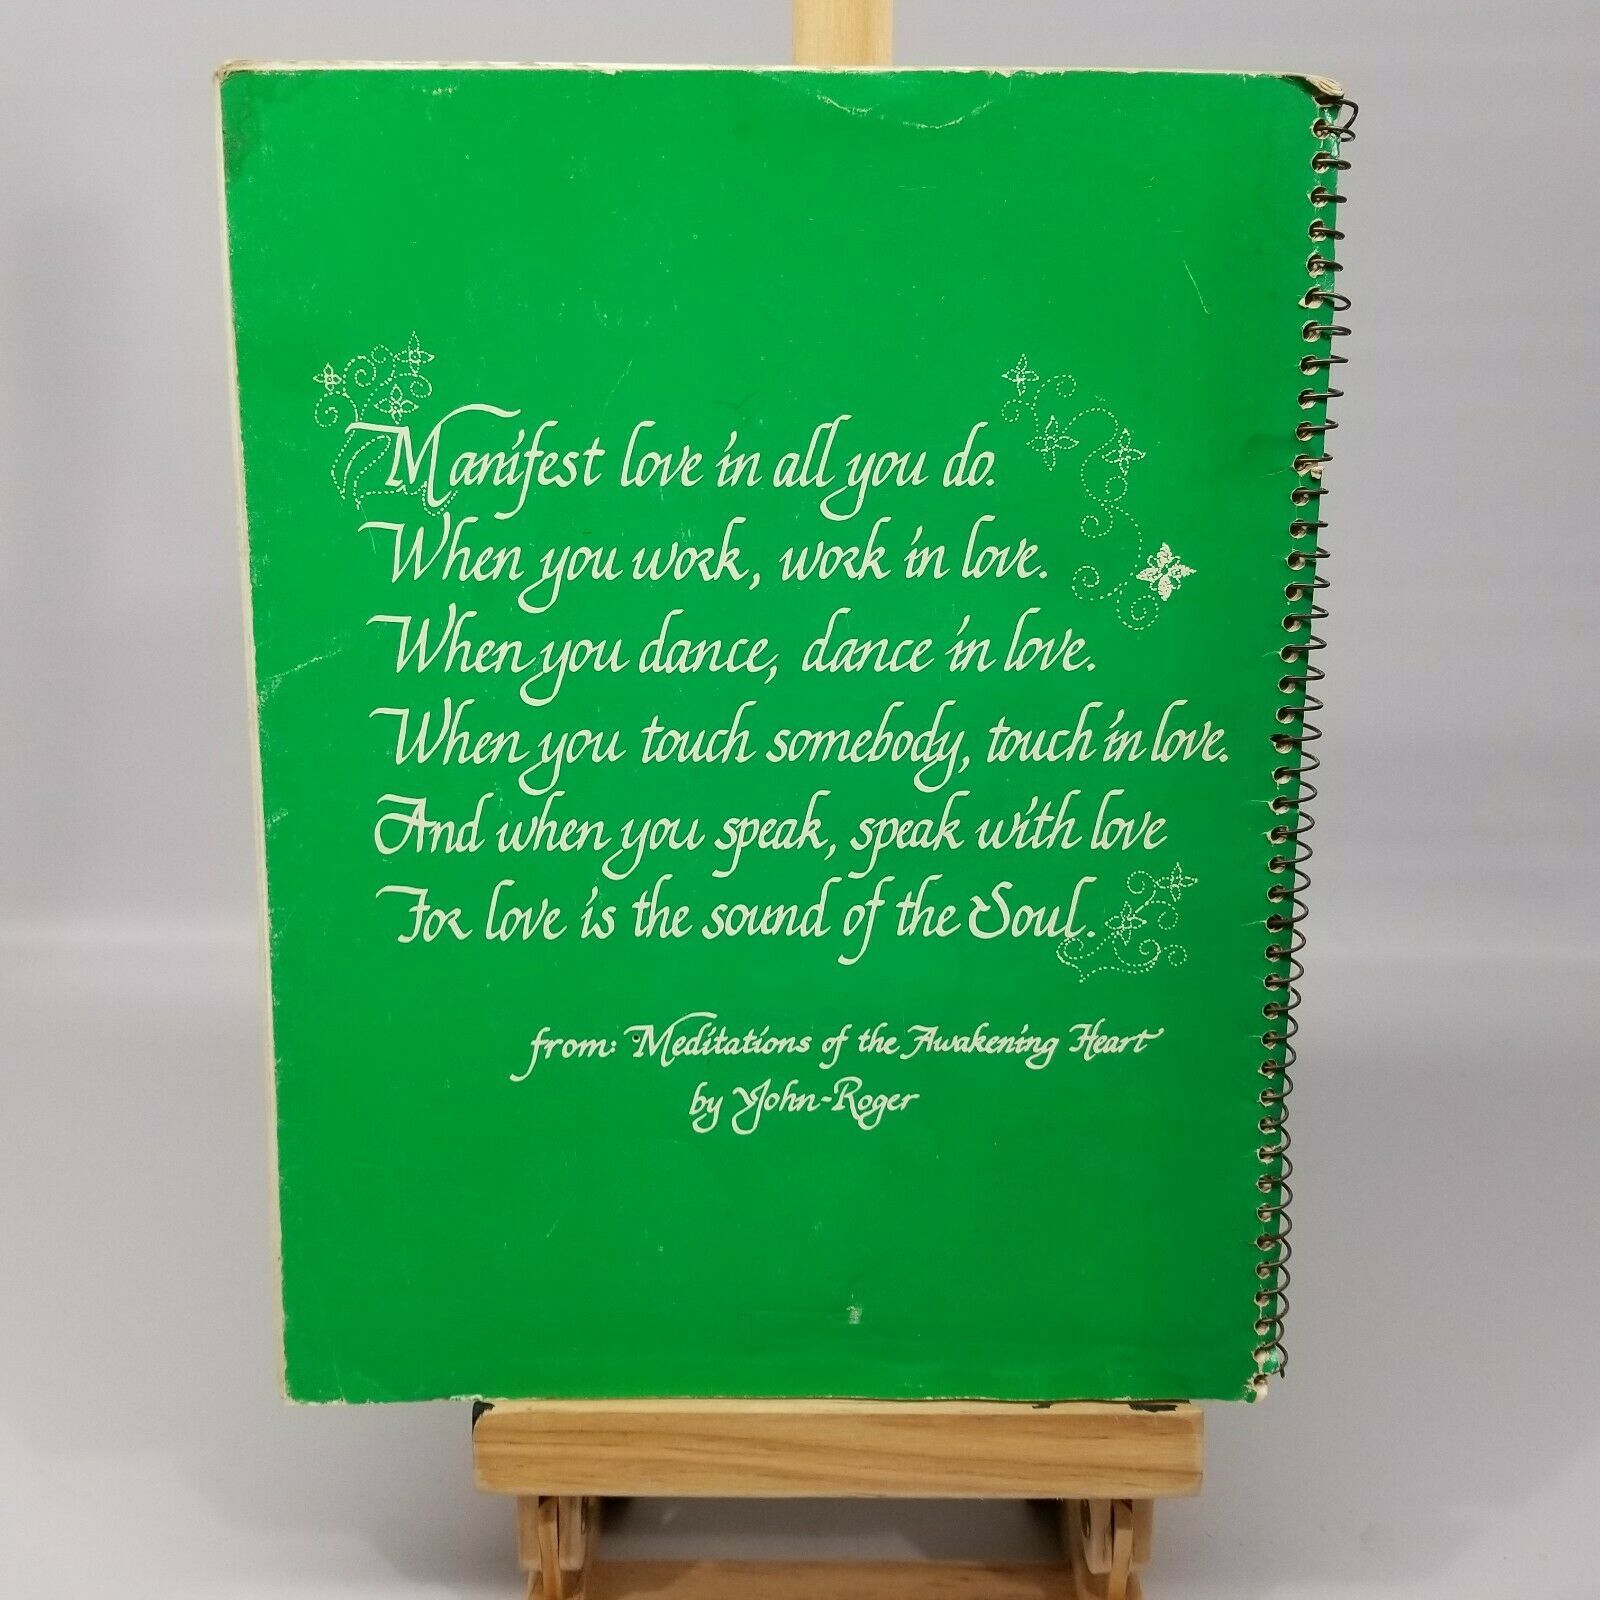 Manifest love in all you do.
When you work, work in love.
When you dance, dance in love.
When you touch somebody, touch in love.
And when you speak, speak with love
For love is the sound of the Soul.
from: Meditations of the Awakening Heart
by John-Roger